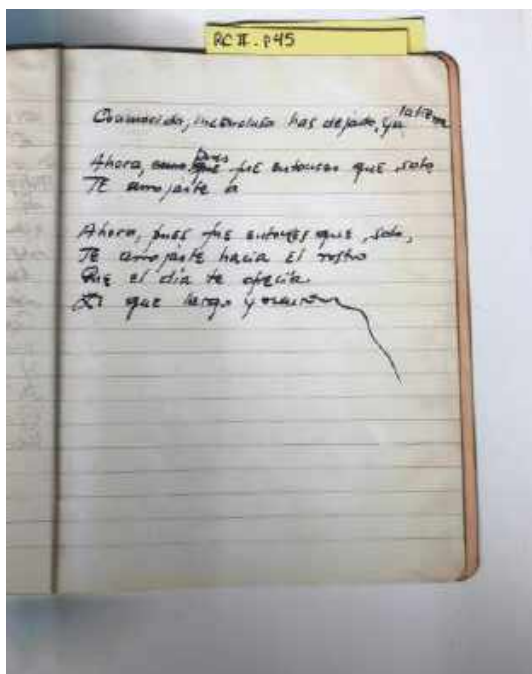 RC II. p45
Conmovido, inconcluso has dejado, ya
la tierra
Ahora, pues fue entonces que, solo
TE arrojaste a
Ahora, pues fue entonces que, solo,
TE arrojaste hacia El rostro
Que el día te ofrecía.
que luego y